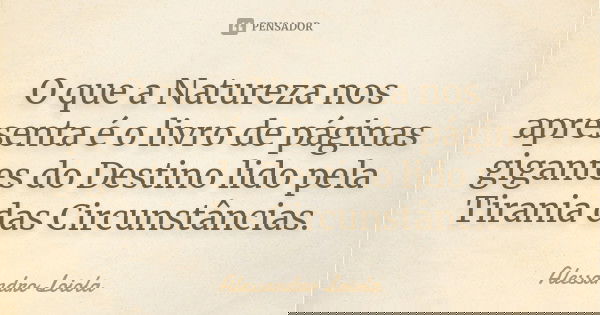 PENSADOR
O que a Natureza nos
apresenta é o livro de páginas
gigantes do Destino lido pela
Tirania das Circunstâncias.
Alessandro Loiola